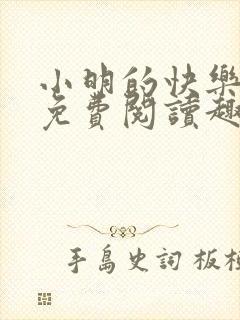 小明的快樂
免費閱讀趣
手島史詞 板桓